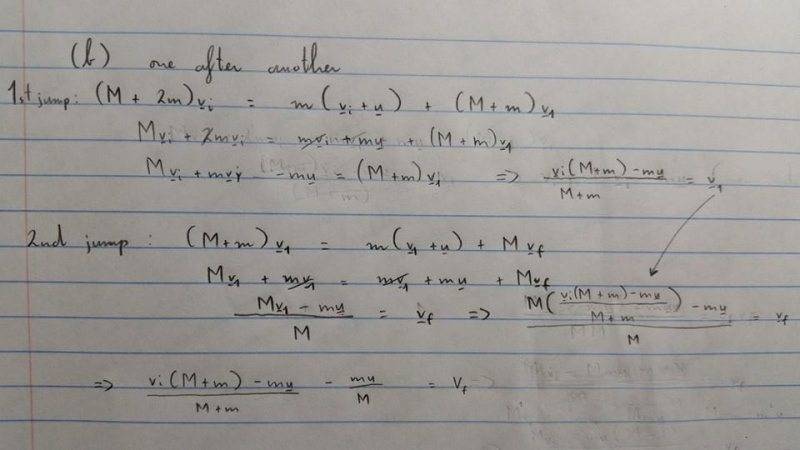 (b) one after another
1st jump: (M + 2m)v̲ᵢ = m(v̲ᵢ + u̲) + (M + m)v̲₁
Mv̲ᵢ + 2mv̲ᵢ = mv̲ᵢ + mu̲ + (M + m)v̲₁
Mv̲ᵢ + mv̲ᵢ - mu̲ = (M + m)v̲₁ => (vᵢ(M+m) - mu̲)/(M+m) = v̲₁
2nd jump: (M+m)v̲₁ = m(v̲₁ + u̲) + Mv̲f
Mv̲₁ + mv̲₁ = mv̲₁ + mu̲ + Mv̲f
(Mv̲₁ - mu̲)/M = v̲f => (M((vᵢ(M+m) - mu̲)/(M+m)) - mu̲)/M = v̲f
=> (vᵢ(M+m) - mu̲)/(M+m) - mu̲/M = Vf